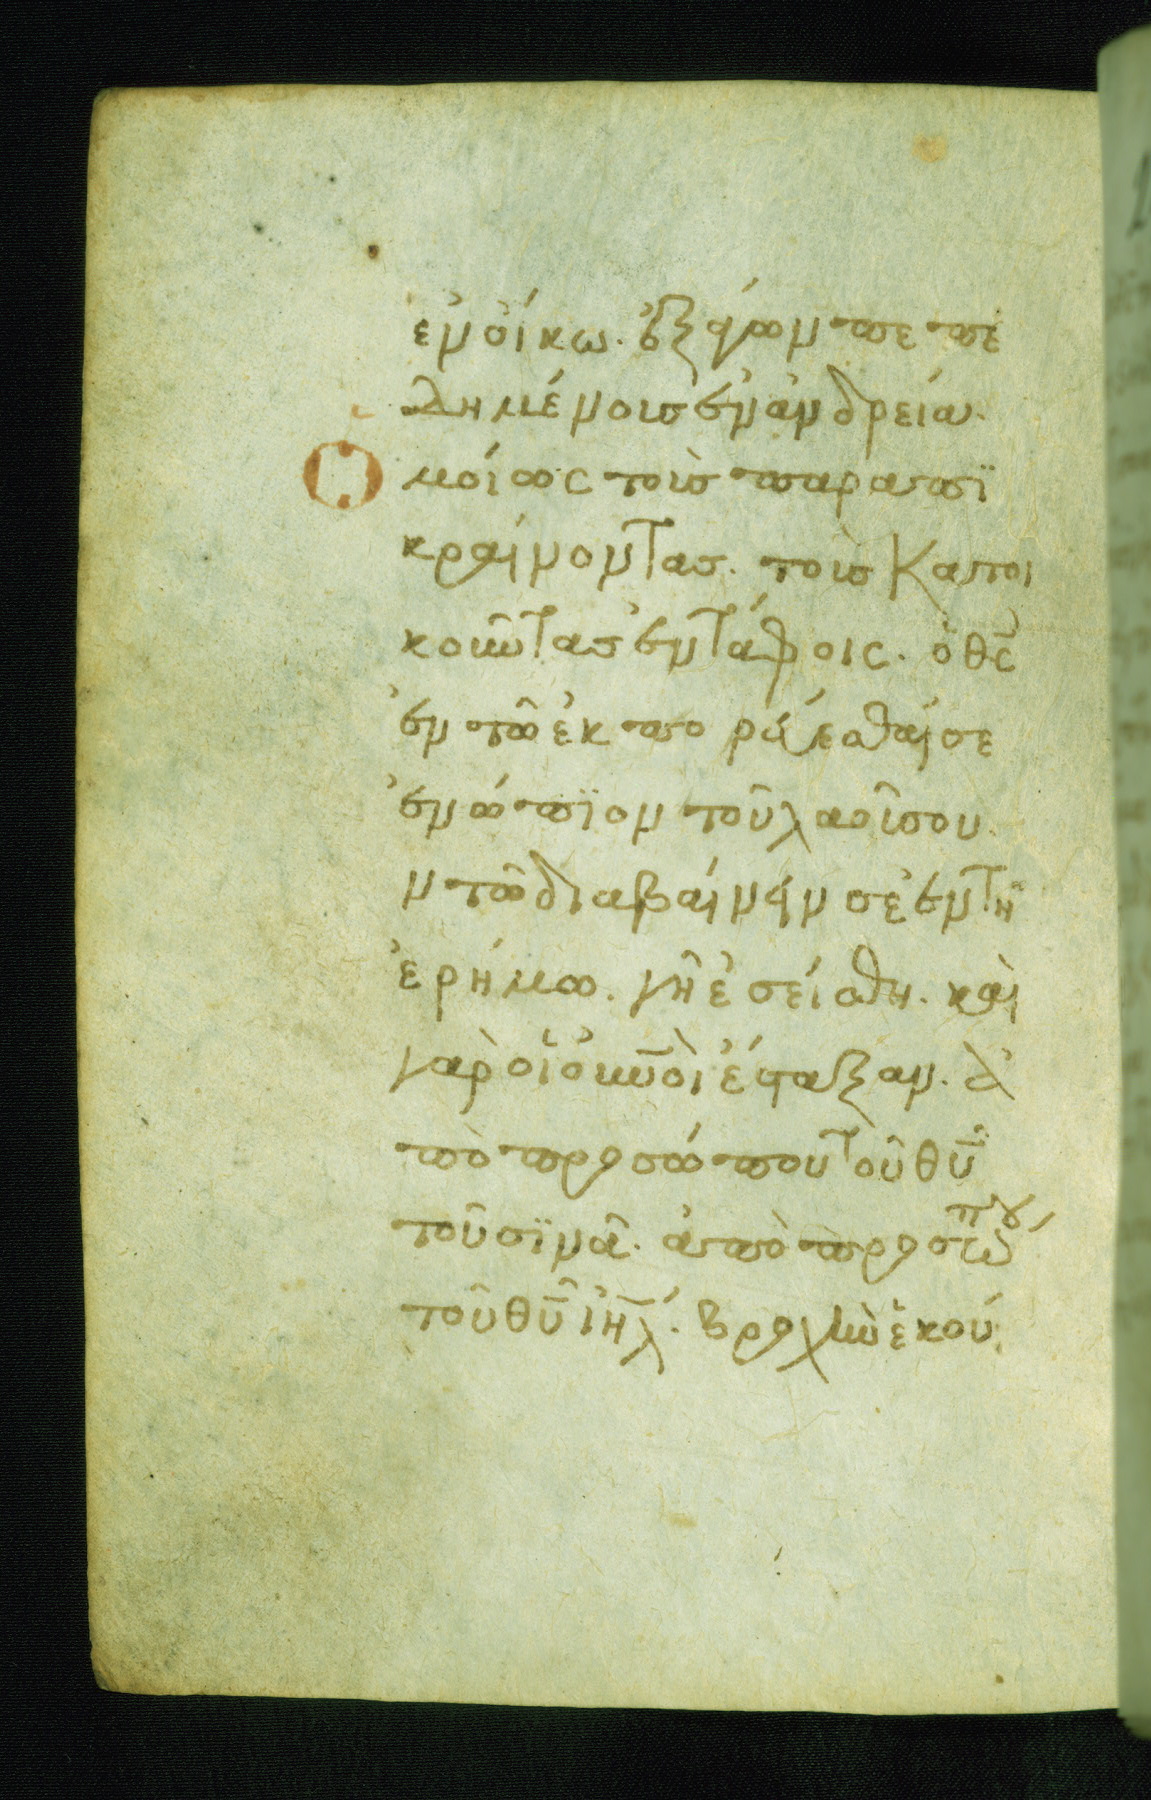 ἐν οἴκω. ἐξάγων πεπε
δημένους ἐν ἀνδρεία.
Ὁμοίως τοὺς παραπϊ
κραίνοντας. τοὺς κατοι
κοῦντας ἐν τάφοις. ὁ θς
ἐν τῶ ἐκπορεύεσθαί σε
ἐνώπϊον τοῦ λαοῦ σου.
ν τῶ διαβαίνειν σε ἐν τῆ
ἐρήμω. γῆ ἐσείσθη. καὶ
γὰρ οἱ οὐνοὶ ἔσταξαν. ἀ
πὸ προσώπου τοῦ θυ
τοῦ σϊνᾶ. ἀπὸ προσώπου
τοῦ θυ ιηλ. βροχὴν ἑκού